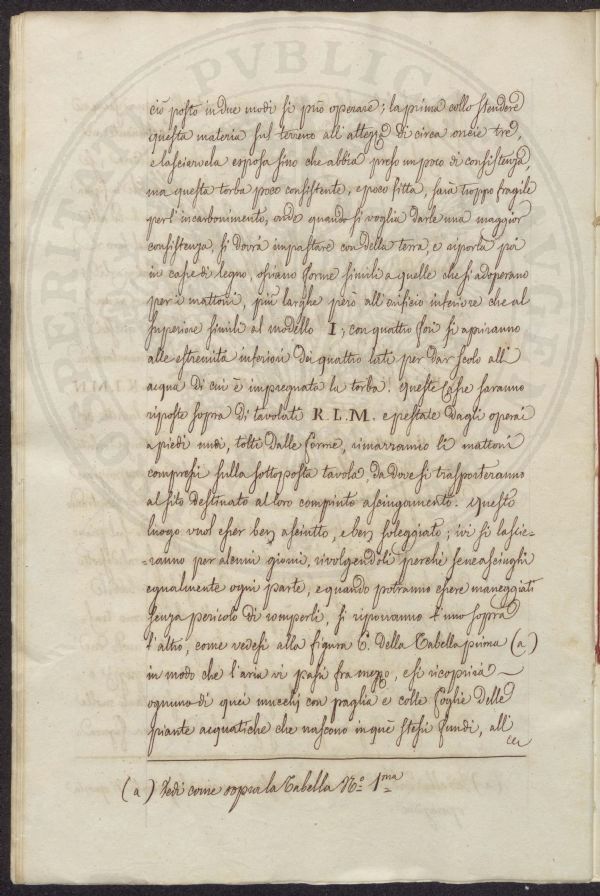 ciò posto in due modi si può operare; la prima collo stendere
questa materia sul terreno all'altezza di circa oncie tre,
e lasciervela esposa fino che abbia preso un poco di consistenza,
ma questa torba poco consistente, e poco fitta, sarà troppo fragile
per l'incarbonimento, onde quando si voglia darle una maggior
consistenza, si dovrà impastare con della terra, e riporla poi
in casse di legno, ossiano forme simili a quelle che si adoperano
per i mattoni, più larghe però all'orificio inferiore che al
superiore simili al modello I; con quattro fori si apriranno
alle estremità inferiori dei quattro lati per dar scolo all'
acqua di cui è impregnata la torba. Queste Casse saranno
riposte sopra di tavolati R.L.M. e pestate dagli operai
a piedi nudi, tolti dalle forme, rimarranno li mattoni
compressi sulla sottoposta tavola, da dove si trasporteranno
al sito destinato al loro compiuto asciugamento. Questo
luogo vuol esser ben asciutto, e ben soleggiato; ivi si lascie=
=ranno per alcuni giorni, rivolgendoli perchè se ne asciughi
egualmente ogni parte, e quando potranno essere maneggiati
senza pericolo di romperli, si riporranno l'uno sopra
l'altro, come vedesi alla figura 6. della Tabella prima (a)
in modo che l'aria vi passi fra mezzo, e si ricoprirà
ognuno di quei mucchi con paglia e colle foglie delle
piante acquatiche che nascono in que' stessi fondi, all'
(a) Vedi come sopra la Tabella N.o 1.ma